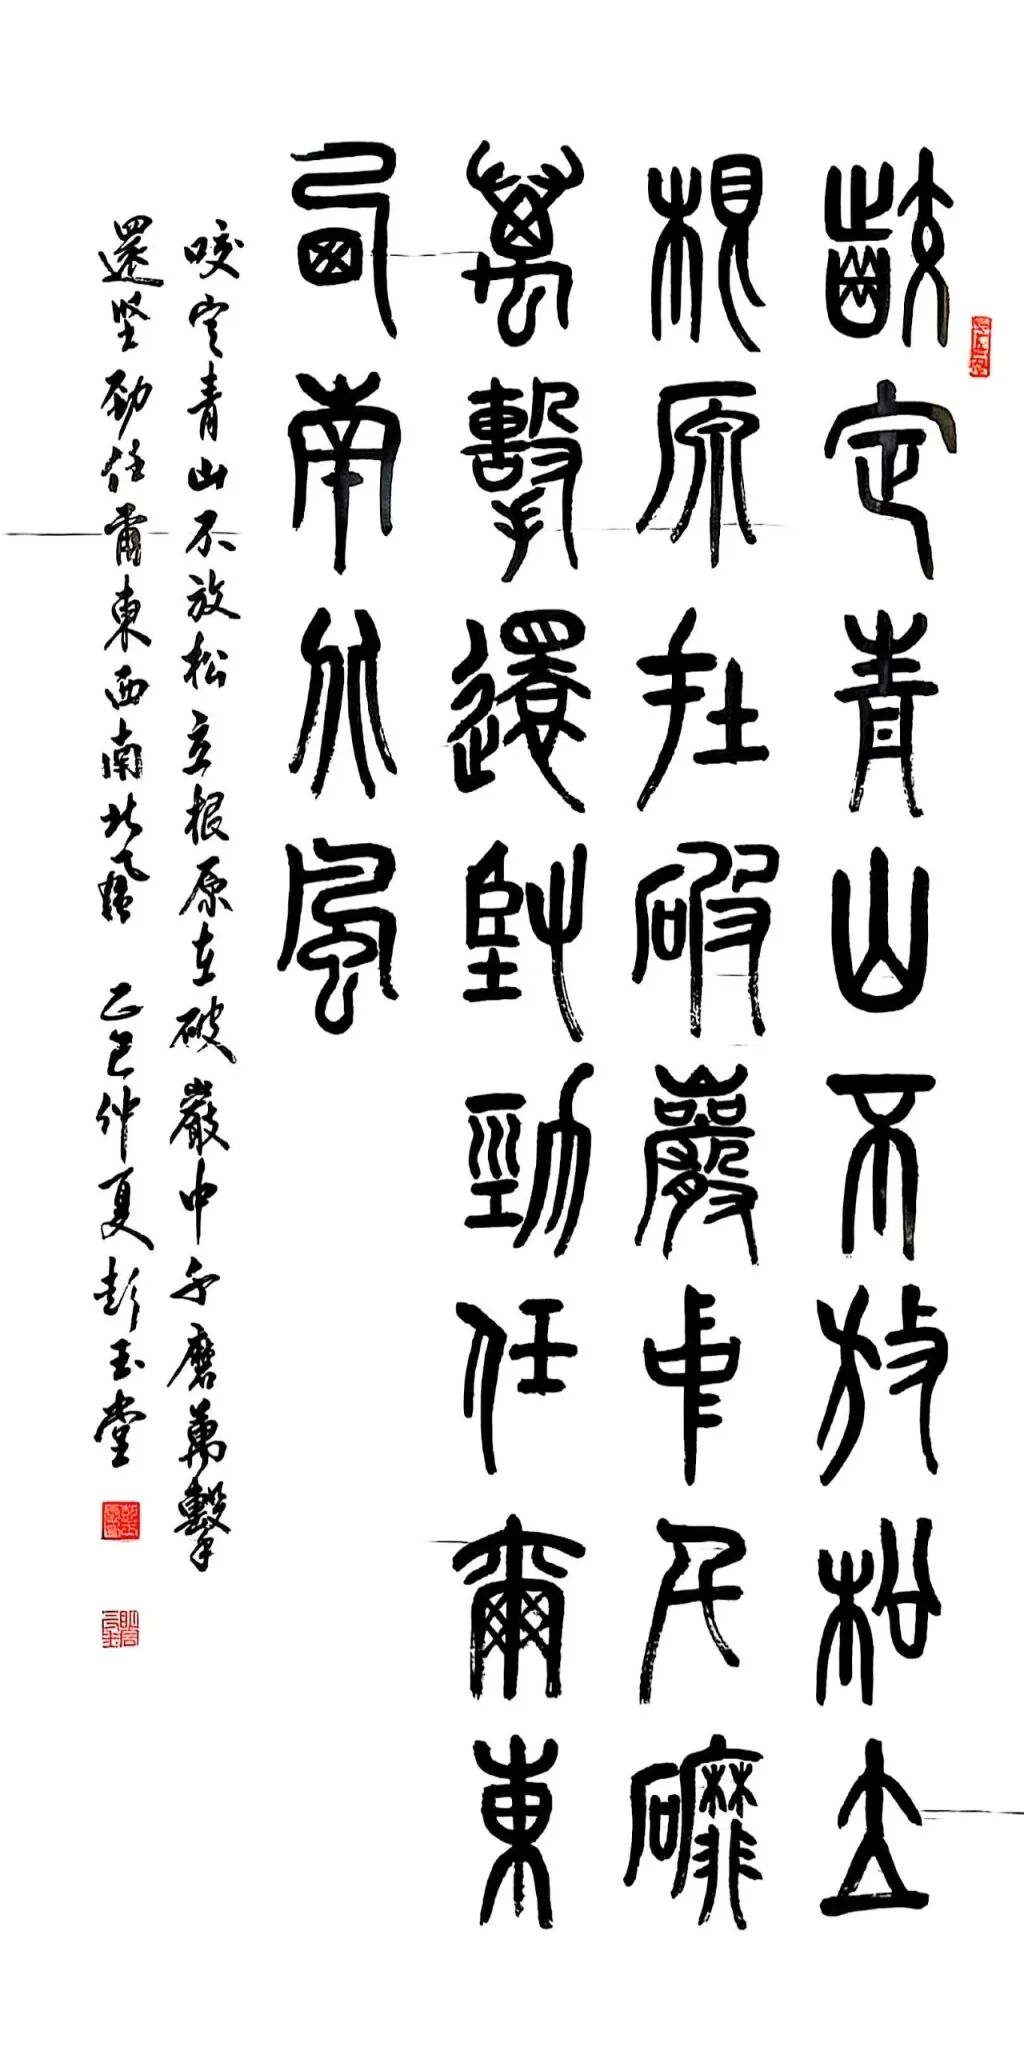 齩定青山不放松立
根原在破巖中千磨
萬擊還堅勁任爾東
西南北風
咬定青山不放松立根原在破巖中千磨萬擊
還坚劲任爾東西南北風 乙巳仲夏彭玉堂